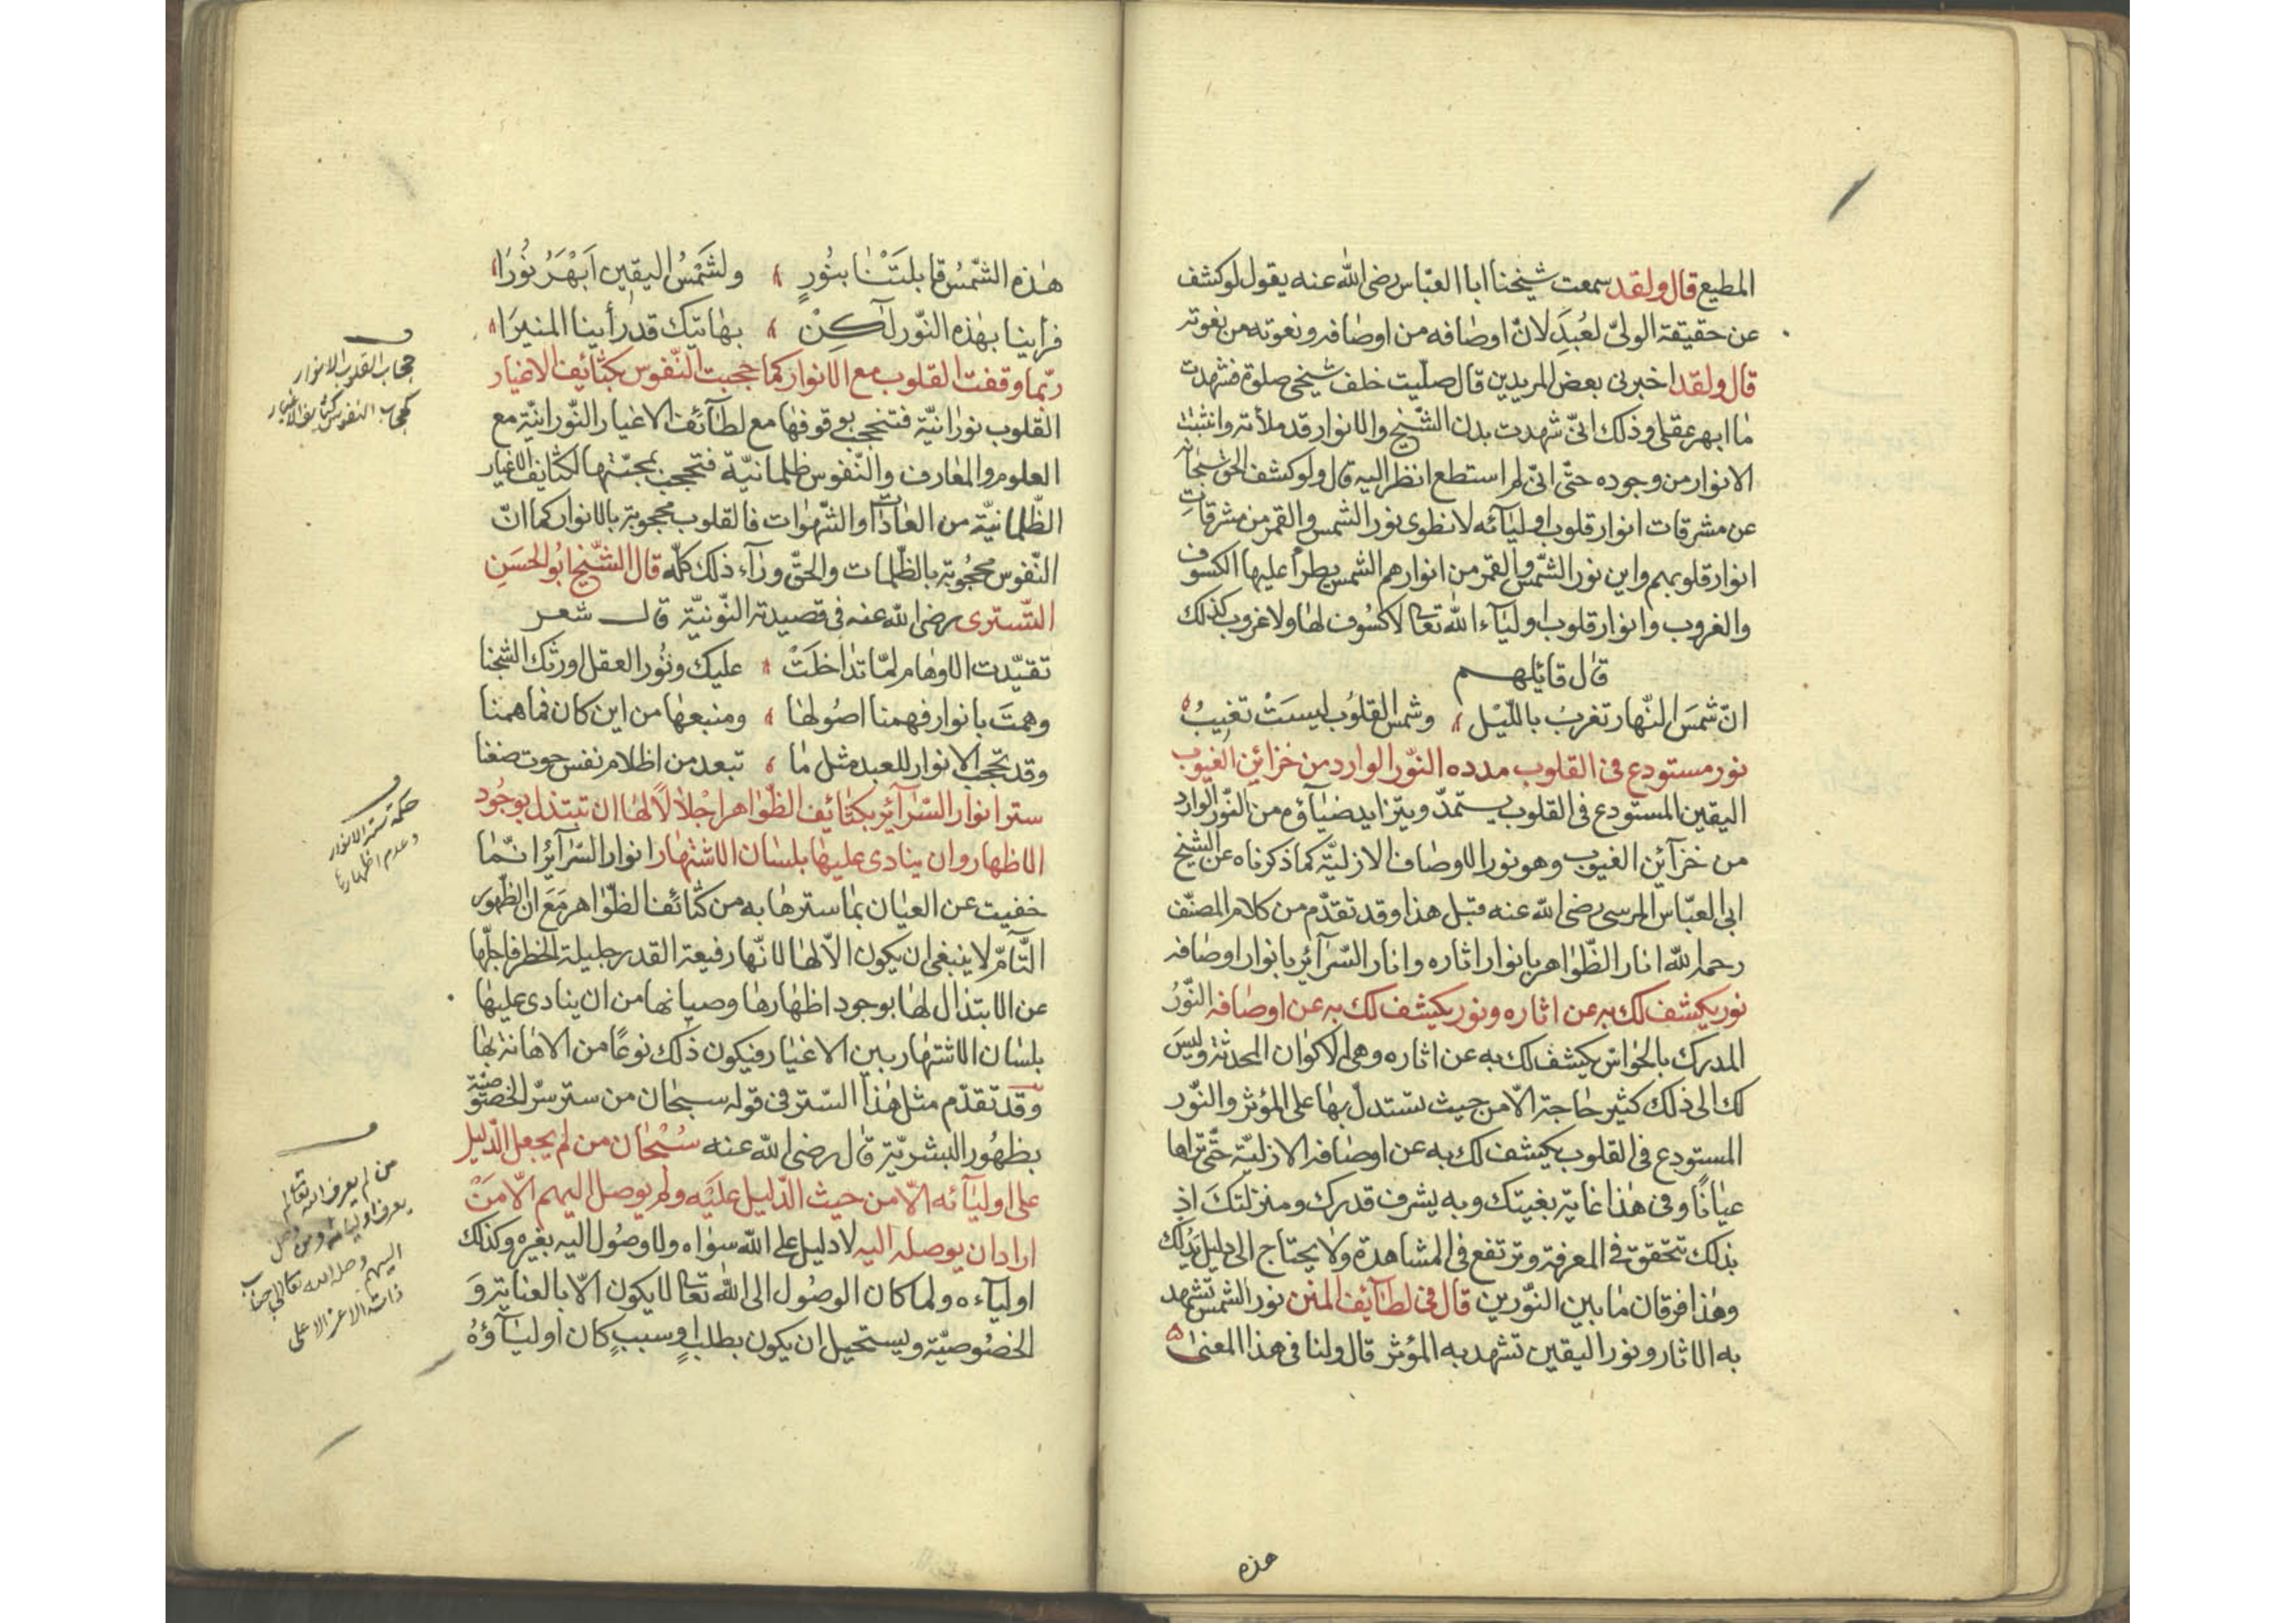 المطيع قال ولقد سمعت شيخنا ابا العبّاس رضى الله عنه يقول لو كشف
عن حقيقة الولىّ لعُبِدَ لانّ اوصافه من اوصافه ونعوته من نعوته
قال ولقد اخبرنى بعض المريدين قال صلّيت خلف شيخى صلوة فشهدت
ما ابهر عقلى وذلك انّى شهدت بدن الشّيخ والانوار قد ملأته وانثبت
الانوار من وجوده حتّى انّى لم استطع انظر اليه قال ولو كشف الحق سبحانه
عن مشرقات انوار قلوب اوليائه لانطوى نور الشمس والقمر من مشرقات
انوار قلوبهم واين نور الشّمس والقمر من انوارهم الشمس يطرأ عليها الكسوف
والغروب وانوار قلوب اولياء الله تعالى لا كسُوف لها ولا غروب كذلك
قال قايلهم
انّ شمسَ النّهار تغربُ باللّيْل وشمس القلُوب ليسَتْ تغيبُ
نور مستودع فى القلوب مدده النّور الوارد من خزائن الغيوب
اليقين المستودع فى القلوب يستمدّ ويتزايد ضياؤه من النّور الوارد
من خزآئن الغيوب وهو نور الاوصاف الازليّة كما ذكرناه عن الشيخ
ابى العبّاس المرسى رضى الله عنه قبل هذا وقد تقدّم من كلام المصنّف
رحمه الله انار الظّواهر بانوار اثاره وانار السّرآئر بانوار اوصافه
نور يكشف لك به عن اثاره ونور يكشف لك به عن اوصافه النّورُ
المدرك بالحواسّ يكشف لك به عن اثاره وهى الاكوان المحدثة وليس
لك الى ذلك كثير حاجة الّا من حيث تستدلّ بها على المؤثر والنّور
المستودع فى القلوب يكشف لك به عن اوصافه الازليّة حتّى تراها
عيانًا وفى هذا غاية بغيتك وبه يشرف قدرك ومنزلتك اذ
بذلك تتحقق فى المعرفة وترتفع فى المشاهدة ولا يحتاج الى دليل يدلك
وهذا فرقان ما بين النّورين قال فى لطآئف المنن نور الشمس تشهد
به الاثار ونور اليقين تشهد به المؤثر قال ولنا فى هذا المعنى
هذه
هذه الشّمسُ قابلتْنا بنُورٍ ولشَمْسُ اليقين اَبْهَرُ نُورًا
فرأينا بهذه النّور لكِنْ بهاتيك قد رأينا المنيرَا
ربّما وقفت القلوب مع الانوار كما حجبت النّفوس بكثائف الاغيار
القلوب نورانيّة فتنحجب بوقوفها مع لطآئف الاغيار النّورانيّة مع
العلوم والمعارف والنّفوس ظلمانيّة فتحجب بمحبّتها لكثائف الاغيار
الظّلمانيّة من العادات والشّهوات فالقلوب محجوبة بالانوار كما انّ
النّفوس محجُوبة بالظّلمات والحقّ ورآء ذلك كلّه قال الشّيخ ابُو الحسَنِ
التّسترى رضى الله عنه فى قصيدته النّونيّة قال شعر
تقيّدت الاوهام لمّا تداخلَتْ عليك ونُور العقل اورثك السّجنا
وهمتَ بانوار فهمنا اصُولها ومنبعها من اين كان فما همنا
وقد تحجب الانوار للعبد مثل ما تبعد من اظلام نفس حوت ضغنا
ستر انوار السّرآئر بكثائف الظّواهر اجْلالًا لها ان تبتذل بوجُود
الاظهار وان ينادى عليها بلسان الاشتهار انوار السّرآئر انّما
خفيت عن العيان بما سترها به من كثائف الظّواهر مَعَ ان الظّهور
التّآمّ لا ينبغى ان يكون الّا لها لانّها رفيعة القدر جليلة الخطر فاجلّها
عن الابتذال لها بوجود اظهارها وصيانها من ان ينادى عليها
بلسان الاشتهار بين الاغيار فيكون ذلك نوعًا من الاهانة لها
وقد تقدّم مثل هذا السّتر فى قوله سبحان من ستر سّر الخصوصيّة
بظهُور البشريّة قال رضى الله عنه سُبْحان من لم يجعل الدّليل
على اوليآئه الّا من حيث الدّليل عليْه ولم يوصل اليهم الّا مَنْ
اراد ان يوصله اليه لا دليل على الله سواه ولا وصُول اليه بغيره وكذلك
اوليآءه ولما كان الوصُول الى الله تعالى لا يكون الّا بالعناية وَ
الخصُوصيّة ويستحيل ان يكون بطلبٍ او سببٍ كان اوليآؤهُ
حجاب القلوب الانوار
كحجاب النفوس كثائف الاغيار
حكمة ستر الانوار
وعدم اظهارها
من لم يعرف الله تعالى لم
يعرف اوليائه ومن وصل
اليهم وصله الله تعالى الى جناب
ذاته الاعز الاعلى